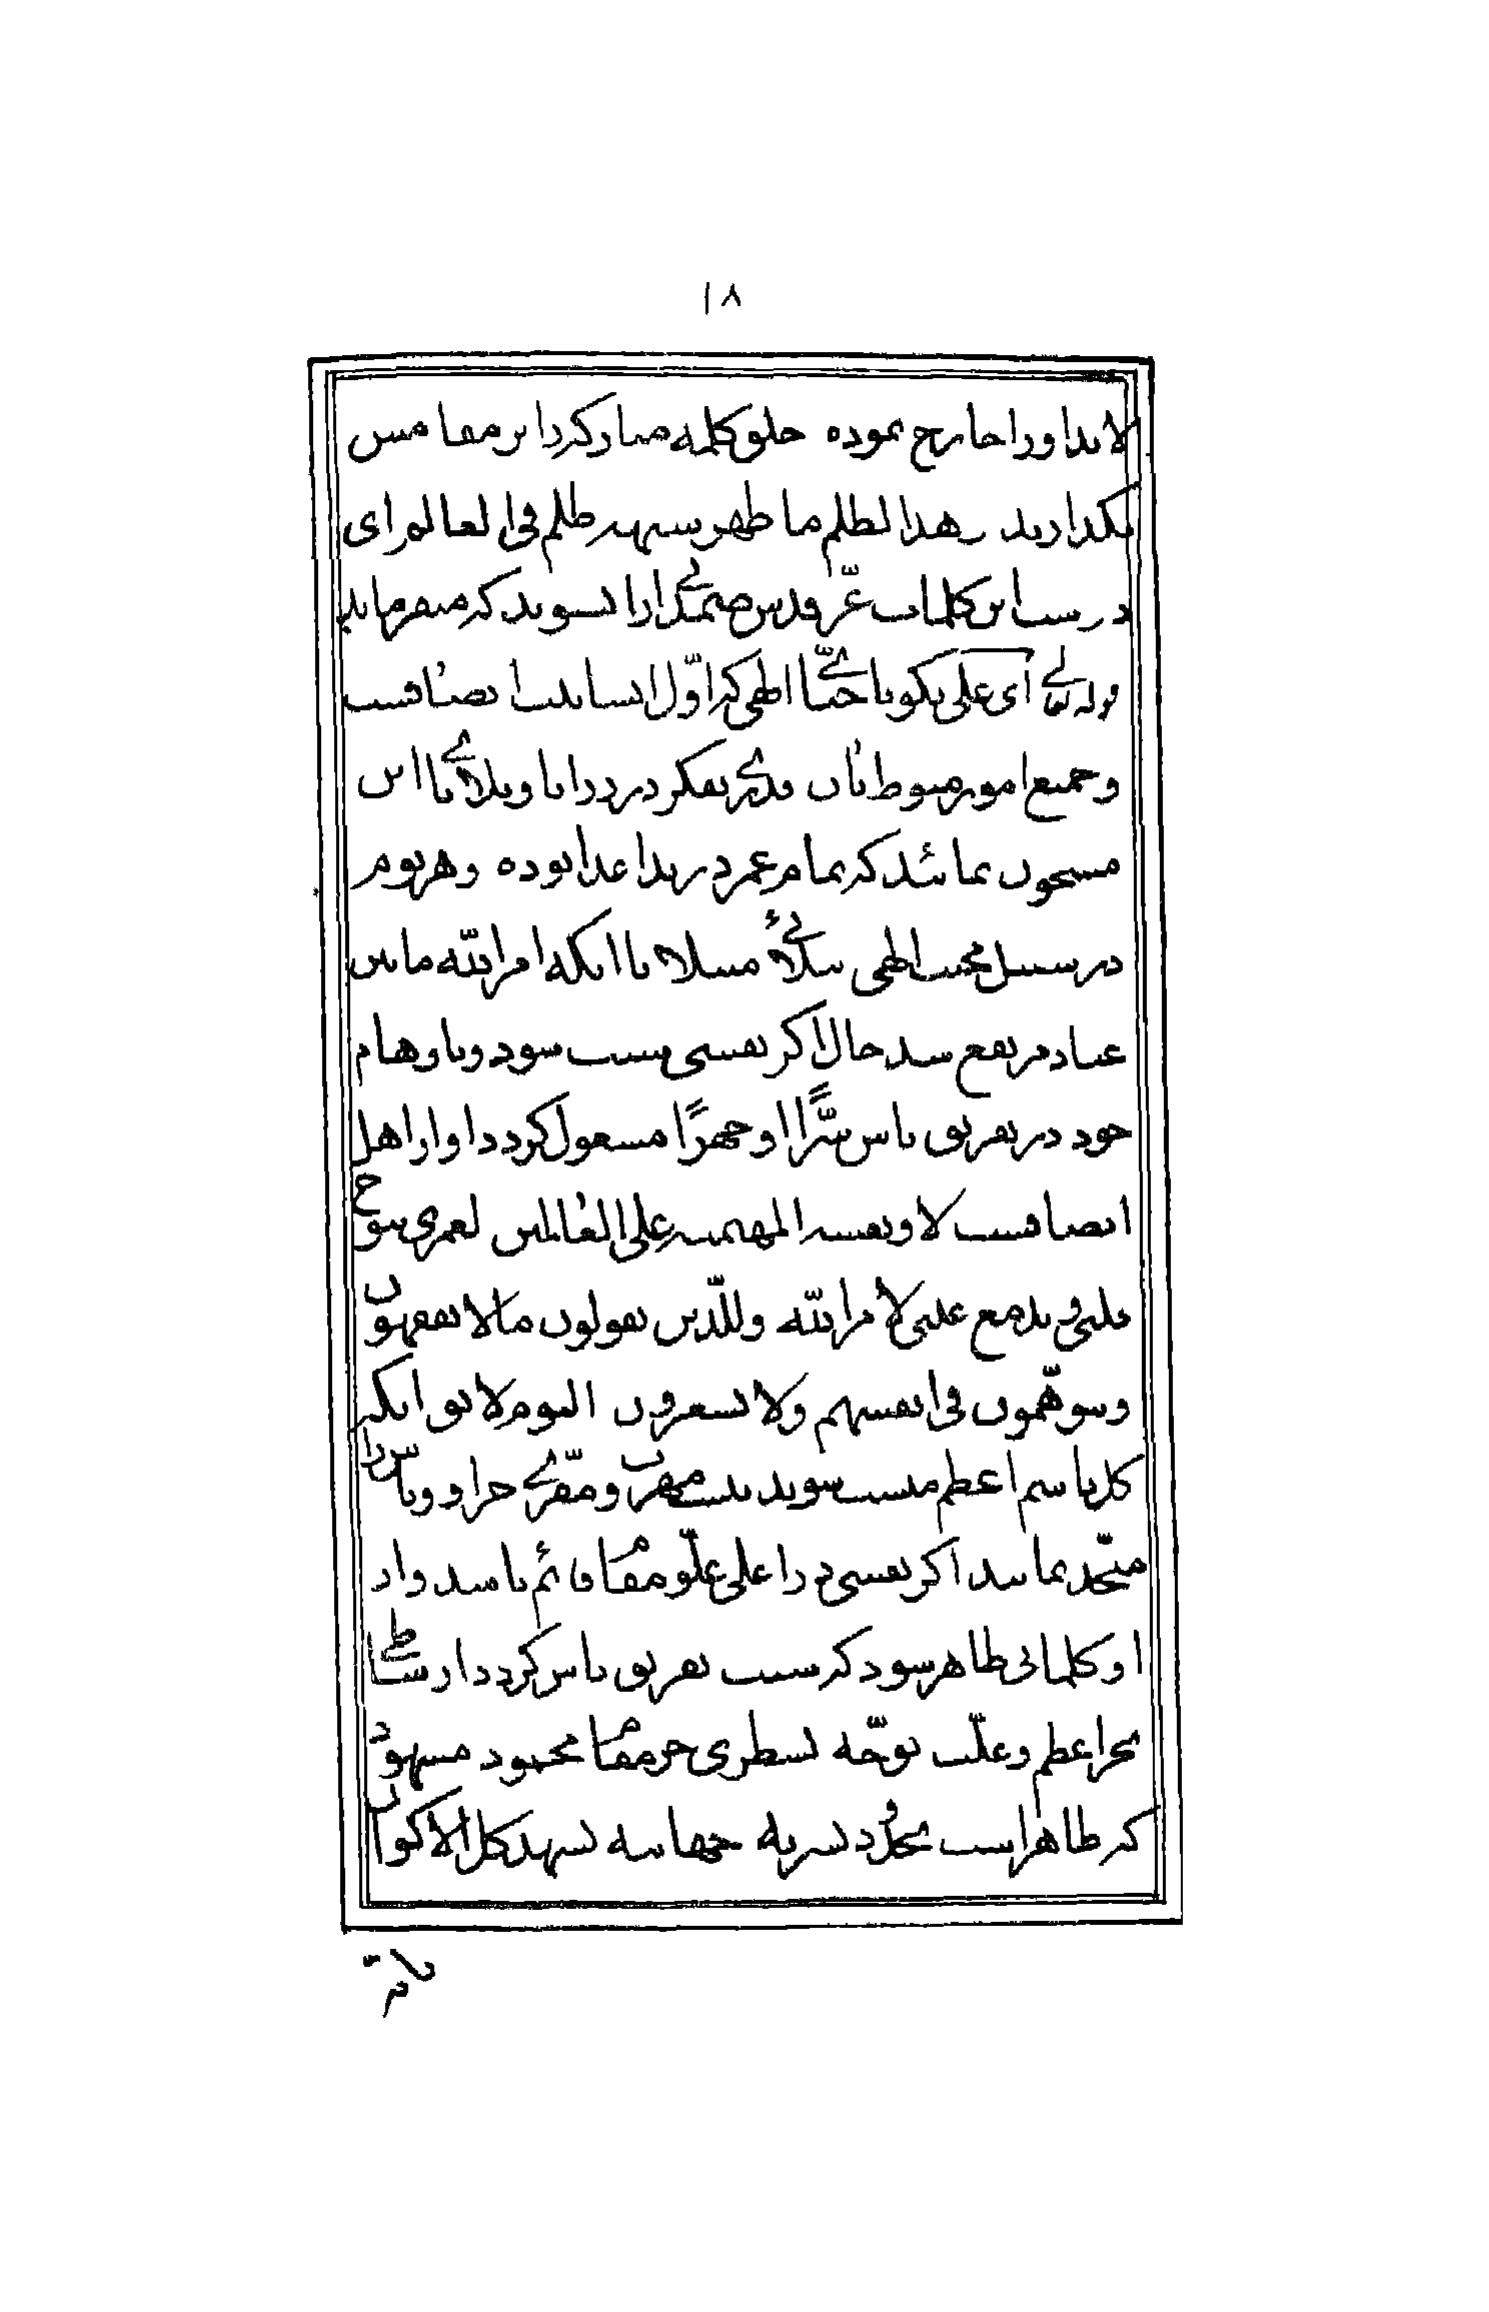 ١٨
لابد او را خارج نموده خلق کلمه مبارکه را بر مقامش
بگذارید بهذا الظلم ما ظهر شبهه ظلم فی العالم ای
درست این کلمات عزّ قدس صمدانی را بشنوید که میفرماید
قوله تعالی ای علی بگو باحبّای الهی که اوّل انسانیت انصافست
و جمیع امور منوط بآن قدری تفکر در رزایا و بلایای این
مسجون نمائید که تمام عمر در ید اعدا بوده و هر یوم
در سبیل محبت الهی ببلائی مبتلا تا آنکه امر الله مابین
عباد مرتفع شد حال اگر نفسی سبب شود و باوهام
خود در تفریق ناس سرّاً او جهراً مشغول گردد آیا از اهل
انصافست لا و نفسه المهیمنه علی العالمین لعمری ینوح
قلبی و یدمع عینی لامر الله و للّذین یقولون ما لا یفقهون
و یتوهّمون فی انفسهم و لا یشعرون الیوم لایق آنکه
کل باسم اعظم متشبث شوید نیست مهرب و مفرّی جز او و ناس را
متّحد نمایند اگر نفسی در اعلی علّو مقام قائم باشد و از
او کلماتی ظاهر شود که سبب تفریق ناس گردد از شاطی
بحر اعظم و علّت توجّه بشطری جز مقام محمود مشهود
که ظاهر است بحدود بشریه جهاتیه یشهد کل الاکوان